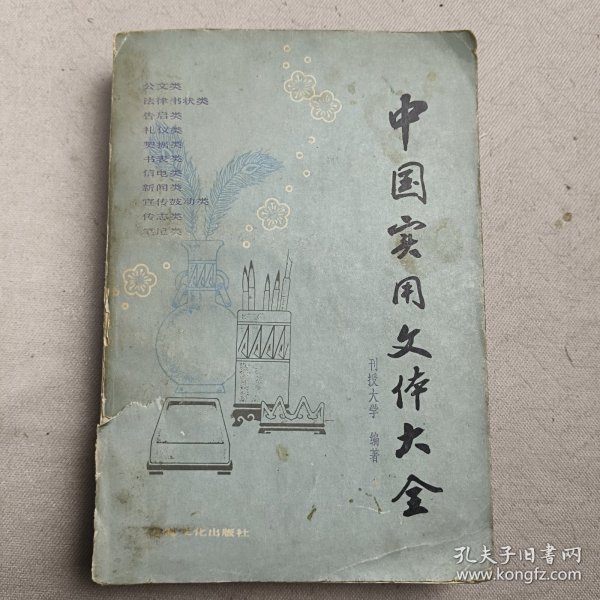 公文类
法律书状类
告启类
礼仪类
契据类
书表类
信电类
新闻类
宣传鼓动类
传志类
笔记类
中国实用文体大全
刊授大学 编著
文化出版社
孔夫子旧书网
www.kongfz.com